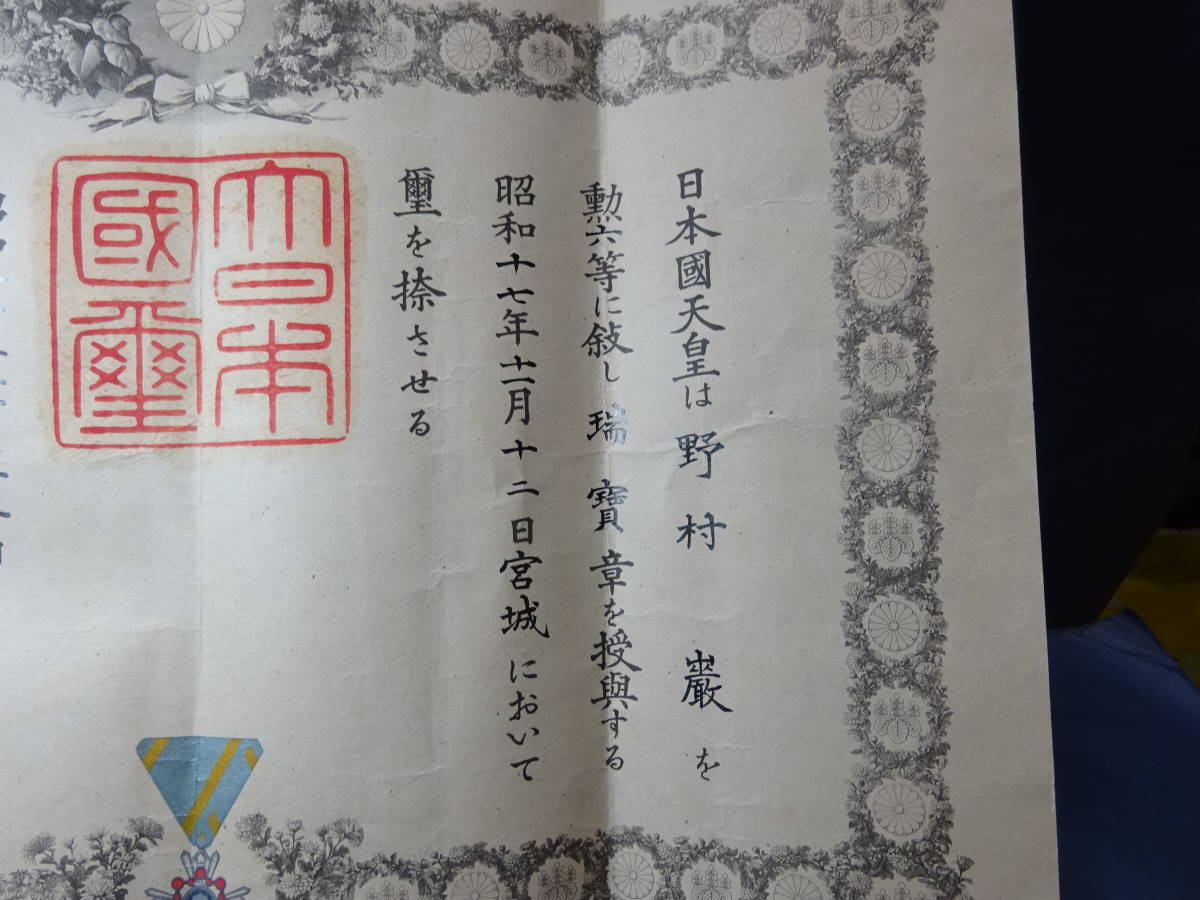 日本國天皇は野村巖を
勲六等に敍し瑞寶章を授與する
昭和十七年十一月十二日宮城において
璽を捺させる
大日本
國璽